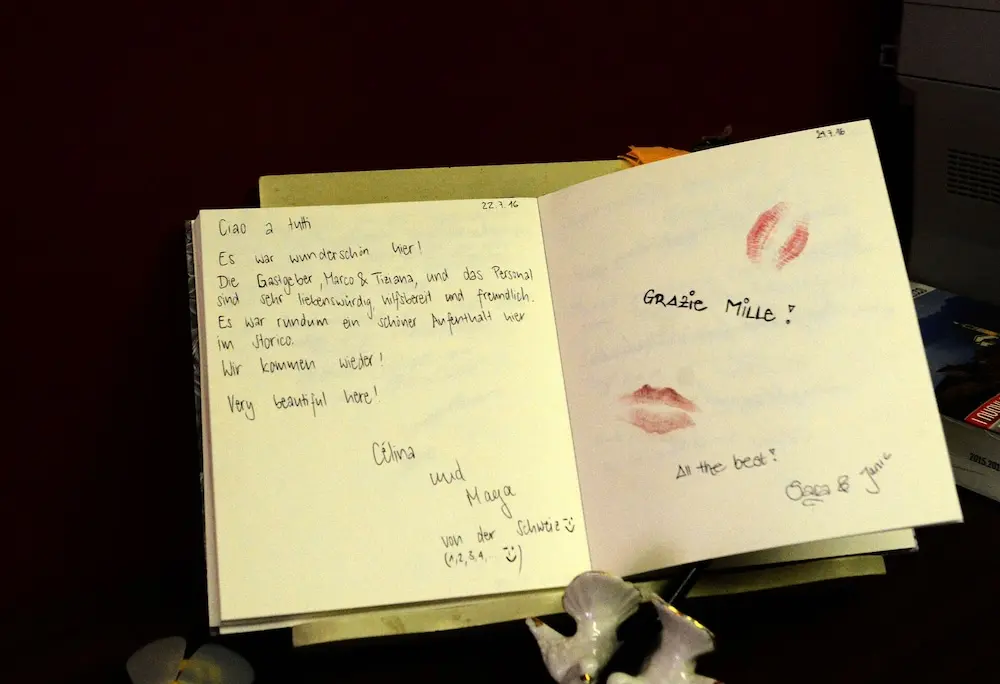 22.7.16
Ciao a tutti
Es war wunderschön hier!
Die Gastgeber, Marco & Tiziana, und das Personal
sind sehr liebenswürdig, hilfsbereit und freundlich.
Es war rundum ein schöner Aufenthalt hier
im Storico.
Wir kommen wieder!
Very beautiful here!
Célina
und
Maya
von der Schweiz
(1, 2, 3, 4, ... )
29.7.16
GRAZIE MILLE!
All the best!
& Janic
2015.201